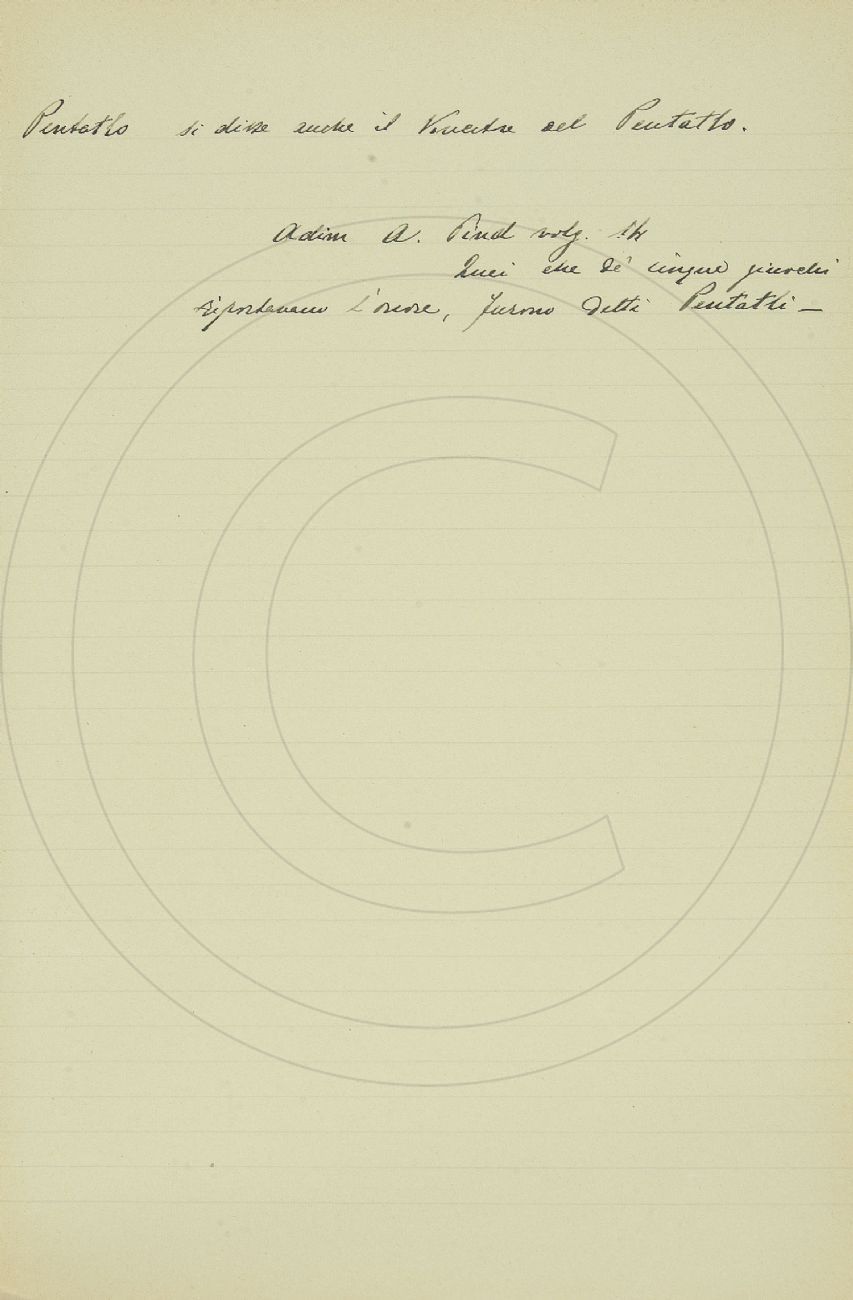 Pentatlo si disse anche il Vincitore del Pentatlo.
Adim A. Pind volg.
Quei che de' cinque giuochi
riportavano l'onore, furono detti Pentatli —